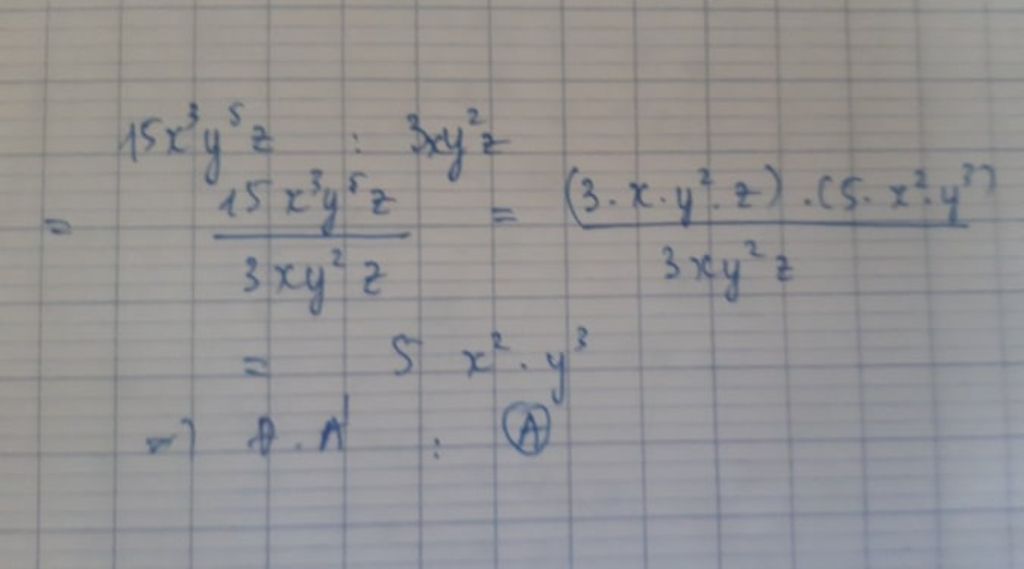 15x³y⁵z : 3xy²z
= 15x³y⁵z / 3xy²z = (3.x.y².z).(5.x².y³) / 3xy²z
= 5 x².y³
=> Đ.A : A